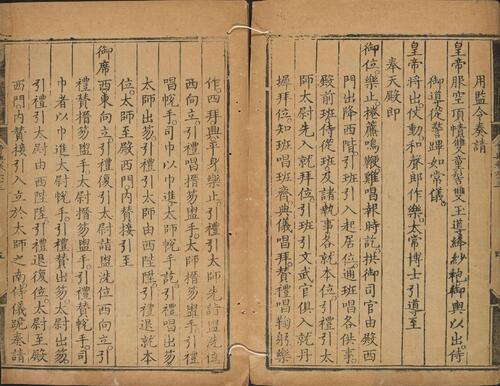 用監令奏請
皇帝服空頂幘雙童髻雙玉導絳紗袍御輿以出侍
御導從警蹕如常儀
皇帝將出仗動和聲郎作樂太常博士引導至
奉天殿即
御位樂止捲簾鳴鞭雞唱報時訖拱御司官由殿西
門出降西階引班引入起居位通班唱各供事
殿前班侍從班及諸執事各就本位引禮引太
師太尉先入就拜位引班引文武官俱入就丹
墀拜位知班唱班齊典儀唱拜贊禮唱鞠躬樂
作四拜興平身樂止引禮引太師先詣盥洗位
西向立引禮唱搢笏盥手太師搢笏盥手引禮
唱帨手司巾以巾進太師帨手訖引禮唱出笏
太師出笏引禮引太師由西陛陞引禮退就本
位太師至殿西門內贊接引至
御席西東向立引禮復引太尉詣盥洗位西向立引
禮贊搢笏盥手太尉搢笏盥手引禮贊帨手司
巾者以巾進太尉帨手引禮贊出笏太尉出笏
引禮引太尉由西陛陞引禮退復位太尉至殿
西門內贊接引入立於太師之南侍儀跪奏請